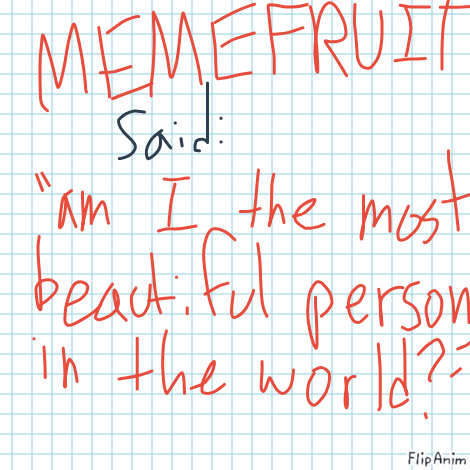 MEMEFRUIT
Said:
"Am I the most
beautiful person
in the world?"
FlipAnim